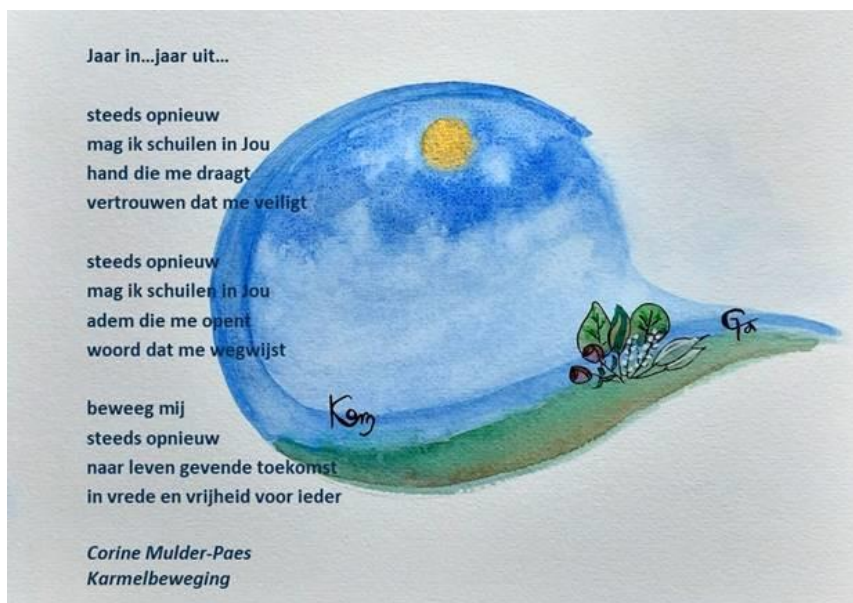 Jaar in...jaar uit...
steeds opnieuw
mag ik schuilen in Jou
hand die me draagt
vertrouwen dat me veiligt
steeds opnieuw
mag ik schuilen in Jou
adem die me opent
woord dat me wegwijst
beweeg mij
steeds opnieuw
naar leven gevende toekomst
in vrede en vrijheid voor ieder
Kom
Ga
Corine Mulder-Paes
Karmelbeweging